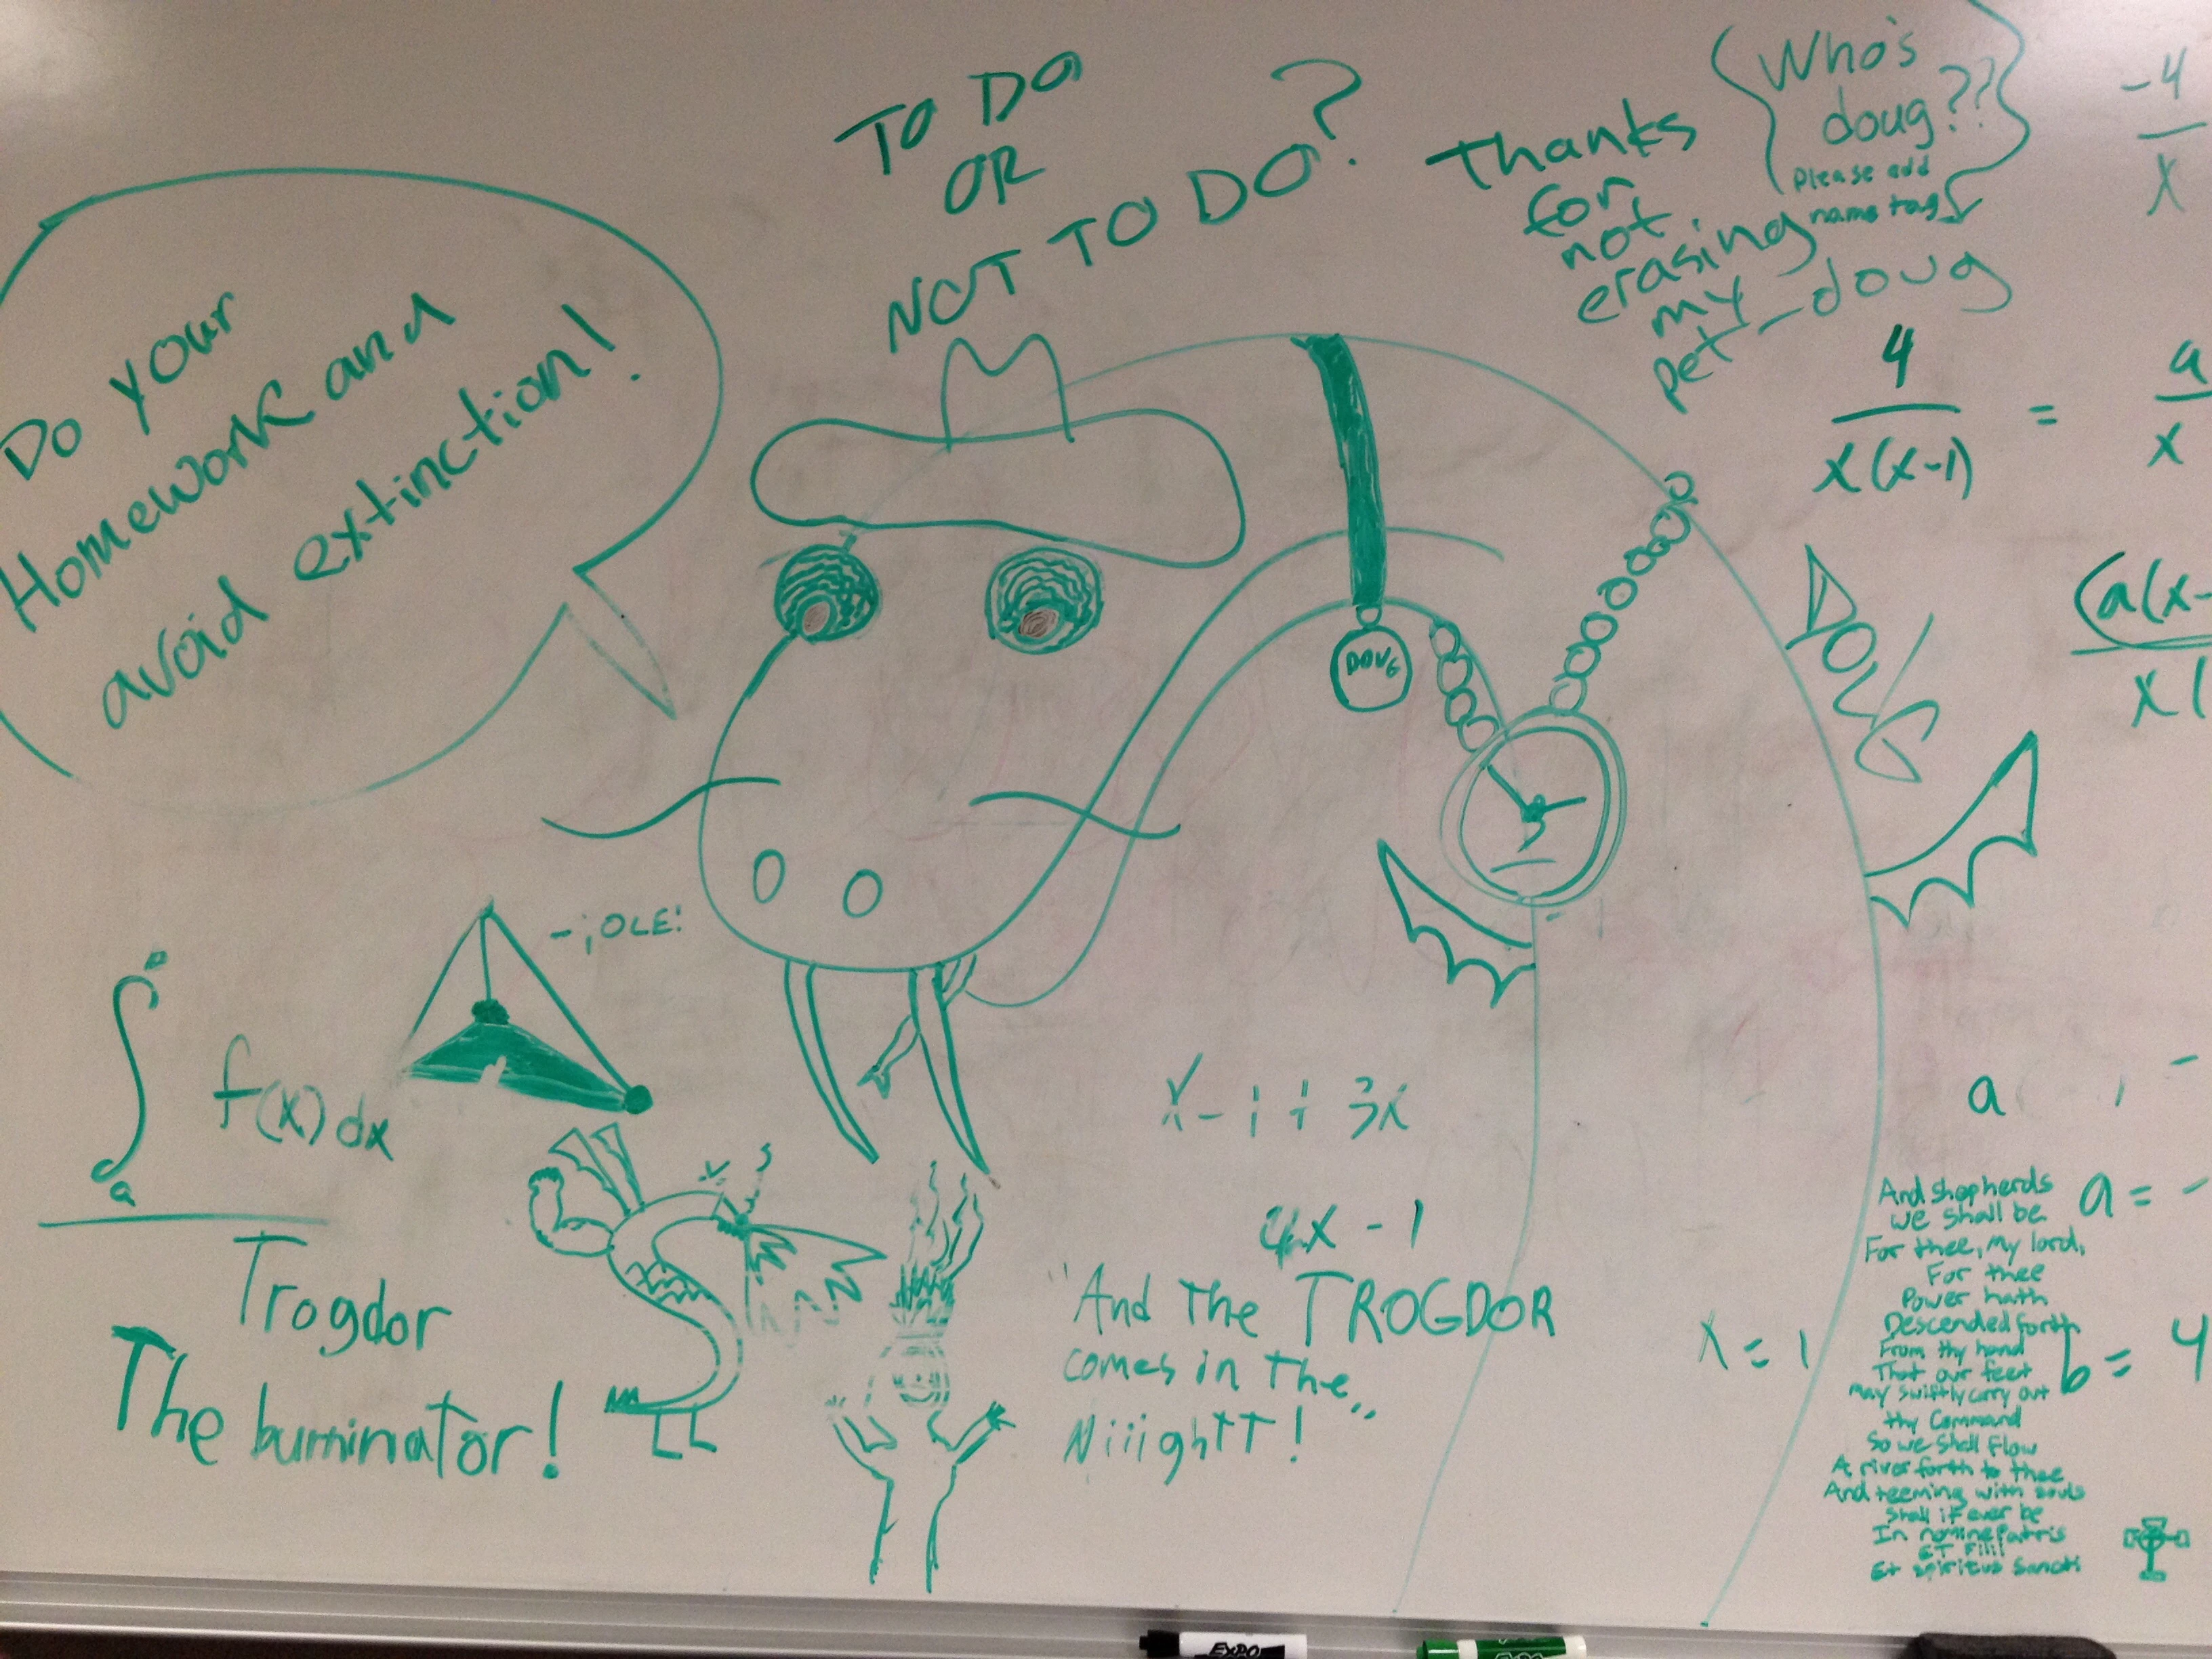 Do your
Homework and
avoid extinction!
TO DO
OR
NOT TO DO?
Thanks
for
not
erasing
my
pet - doug
Who's
doug??
please add
name tag
-4
x
4
x(x-1)
=
a
x
(a(x-
x(
DOUG
DOUG
- ¡OLE!
∫
a
f(x) dx
Trogdor
The burninator!
x - 1 + 3x
4x - 1
"And The TROGDOR
comes in The
Niiightt!"
x = 1
a
a = -
b = 4
And shepherds
we shall be
For thee, my lord,
For thee
Power hath
Descended forth
From thy hand
That our feet
may swiftly carry out
thy Command
So we shall flow
A river forth to thee
And teeming with souls
shall it ever be
In nomine Patris
ET Filii
Et spiritus sancti
EXPO